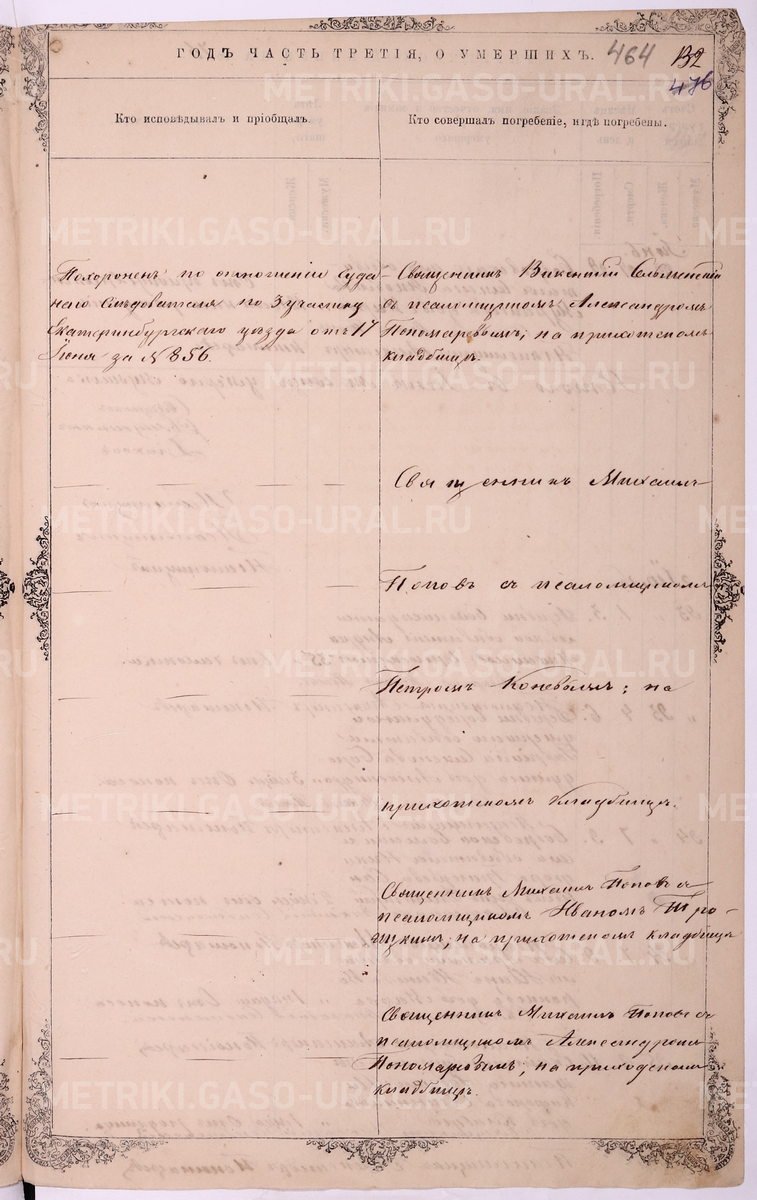 ГОДЪ ЧАСТЬ ТРЕТІЯ, О УМЕРШИХЪ. 464 132
476
Кто исповѣдывалъ и пріобщалъ.
Кто совершалъ погребеніе, и гдѣ погребены.
Похороненъ по отношенію Судеб-
наго Слѣдователя по 3 участку
Екатеринбургскаго уѣзда отъ 17
Іюня за № 856.
Священникъ Викентій
съ псаломщикомъ Александромъ
Пономаревымъ; на приходскомъ
кладбищѣ.
Священникъ Михаилъ
Поповъ съ псаломщикомъ
Петромъ Коневымъ; на
приходскомъ кладбищѣ.
Священникъ Михаилъ Поповъ съ
псаломщикомъ Иваномъ Тро-
ицкимъ; на приходскомъ кладбищѣ
Священникъ Михаилъ Поповъ съ
псаломщикомъ Александромъ
Пономаревымъ, на приходскомъ
кладбищѣ.
METRIKI.GASO-URAL.RU